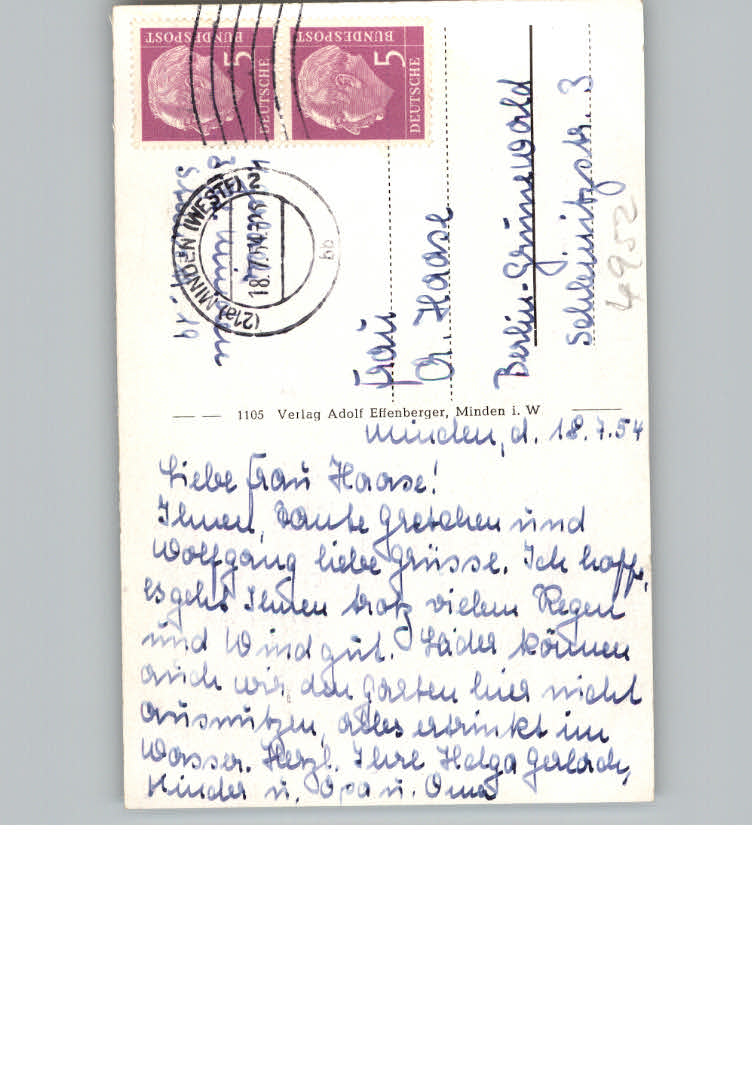 DEUTSCHE
BUNDESPOST
5
DEUTSCHE
BUNDESPOST
5
(21a) MINDEN (WESTF) 2
18.7.54
bb
Frau
A. Haase
Berlin-Grünewald
Schleinitzstr. 3
4952
1105 Verlag Adolf Effenberger, Minden i. W
Minden, d. 18.7.54
Liebe Frau Haase!
Ihnen, Tante Gretchen und
Wolfgang liebe Grüsse. Ich hoffe,
es geht Ihnen trotz vielem Regen
und Wind gut. Leider können
auch wir den Garten hier nicht
ausnützen, alles ertrinkt im
Wasser. Herzl. Ihre Helga Gerlach,
Kinder u. Opa u. Oma